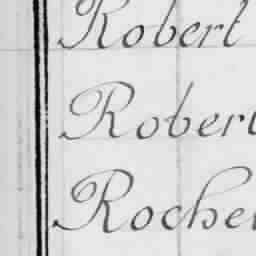 Robert
Robert
Roche